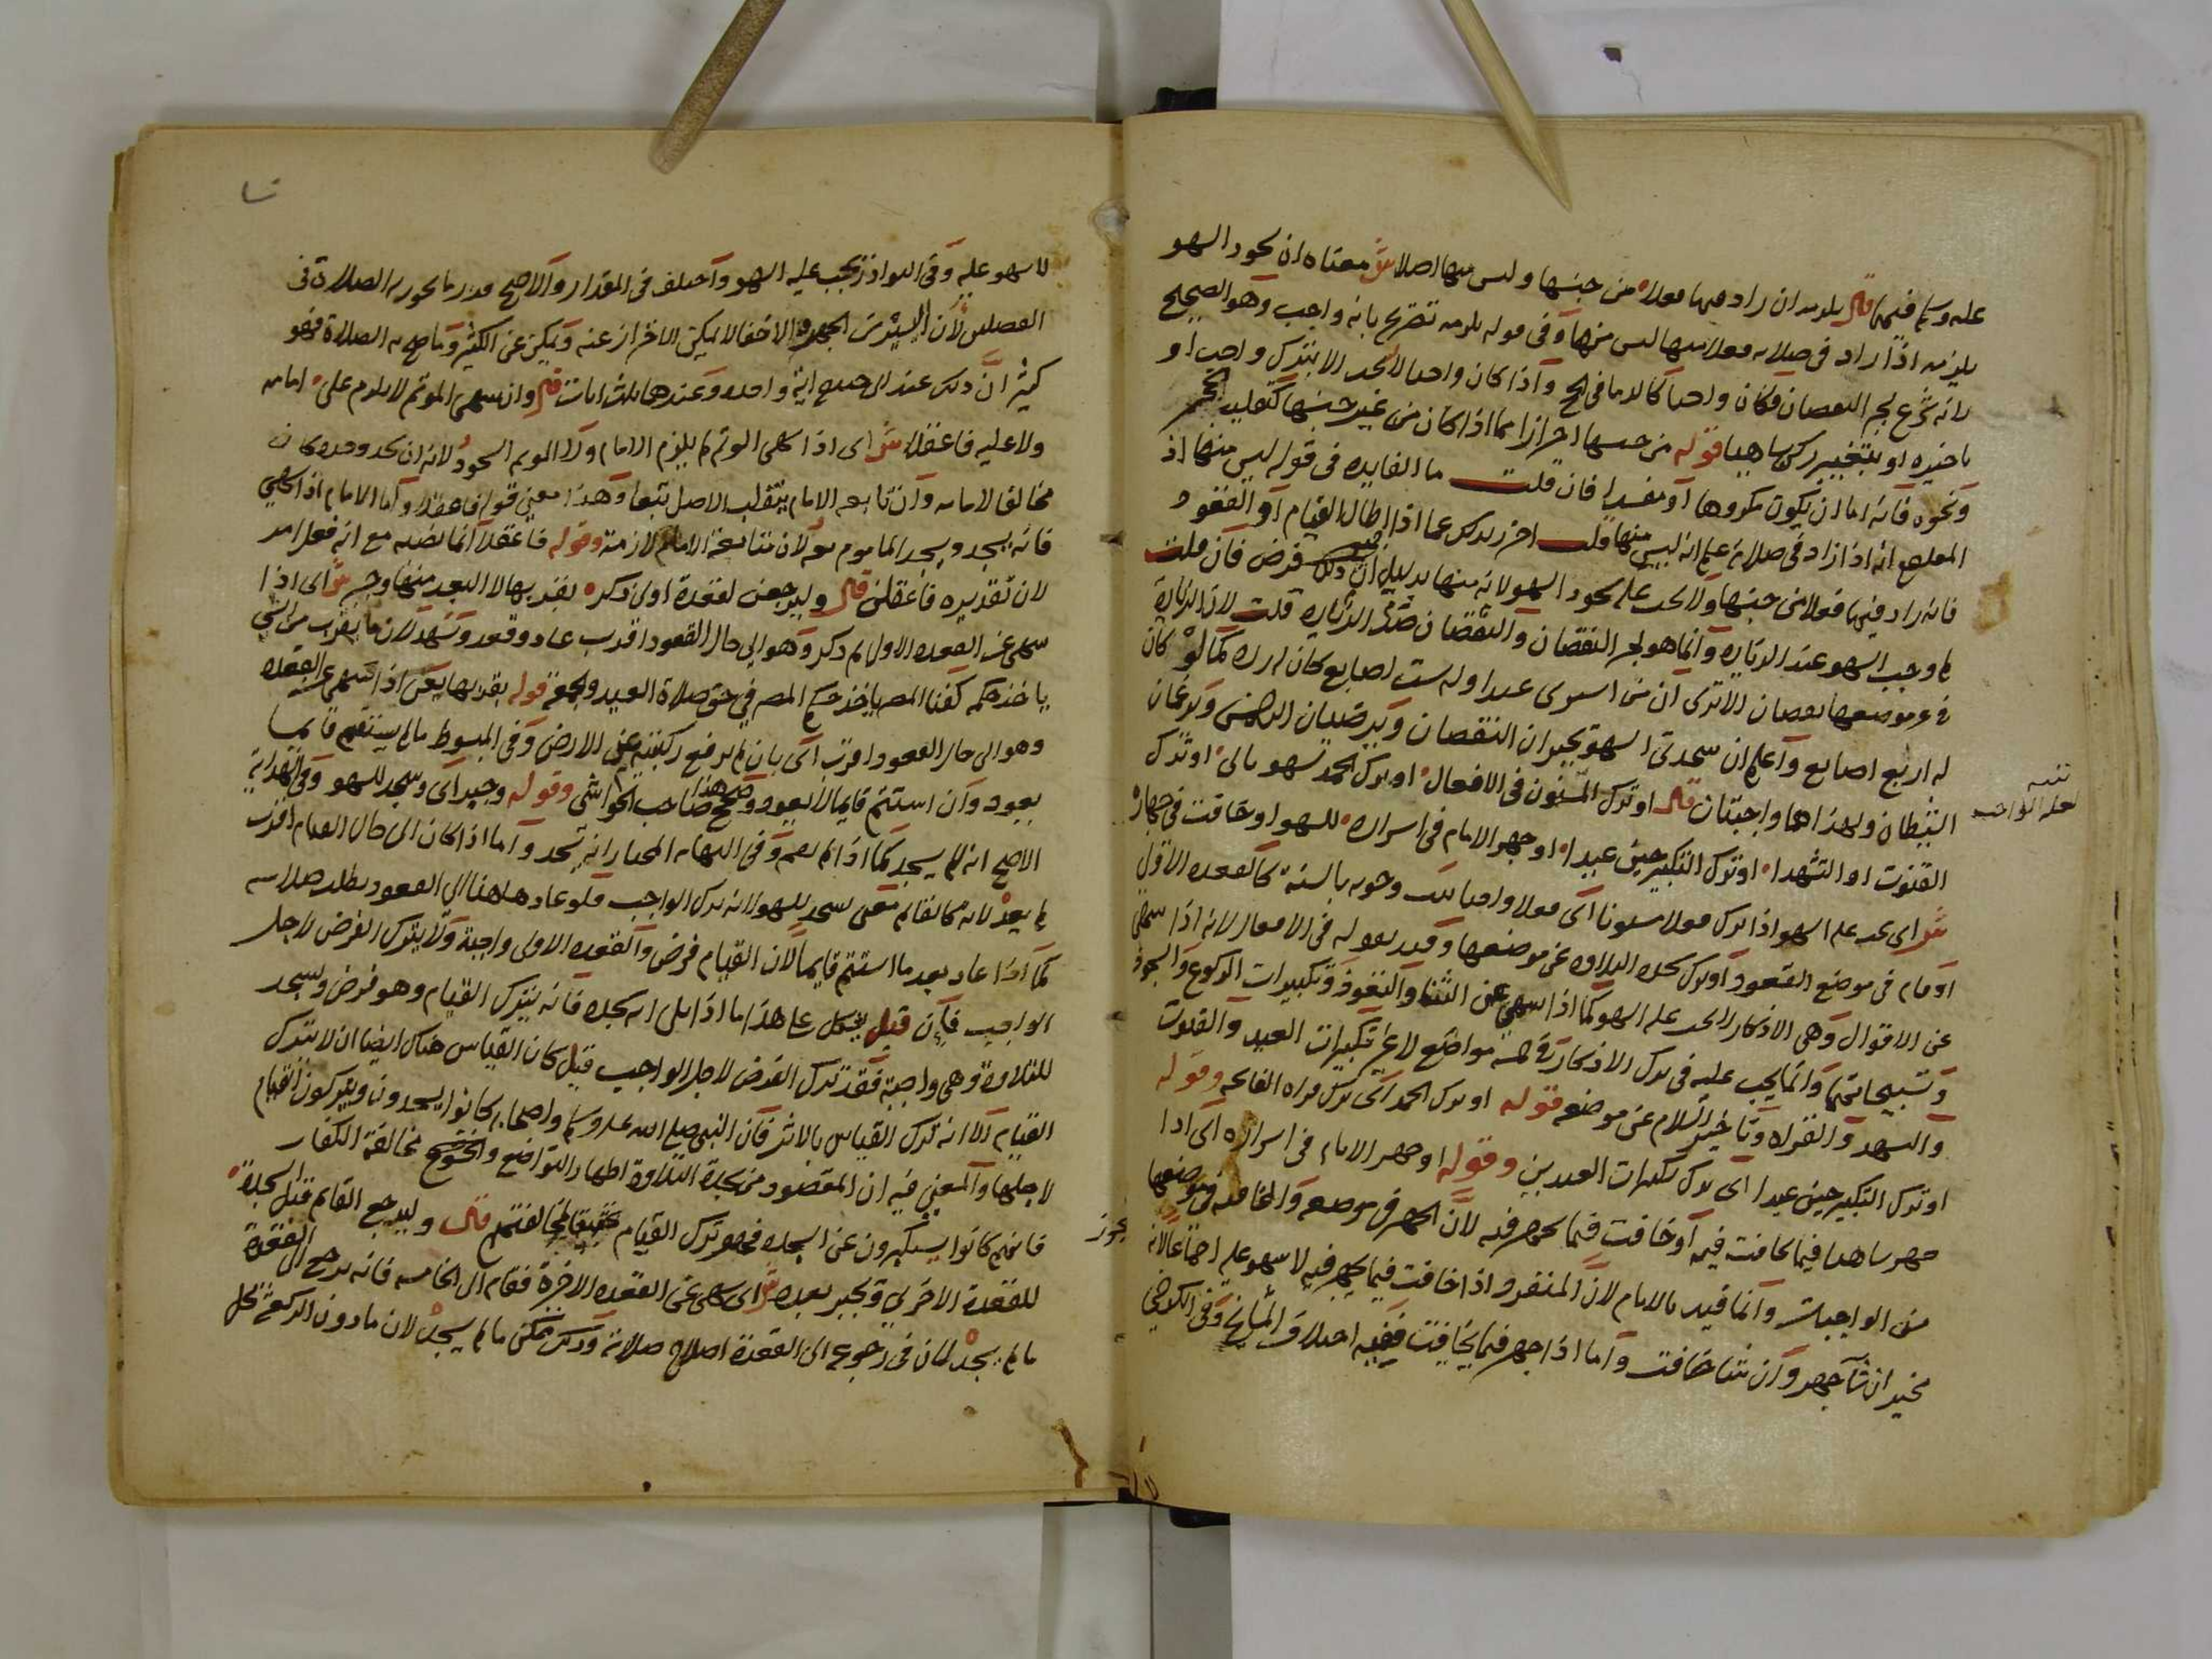 عليه وسلم فيهما قال يلزمه ان زاد فيها فعلا من جنسها وليس منها اصلا ش معناه ان سجود السهو
يلزمه اذا زاد في صلاته فعلا منها ليس منها وفي قوله يلزمه تصريح بانه واجب وهو الصحيح
لانه شرع لجبر النقصان فكان واجبا كالدما في الحج واذا كان واجبا لا يجب الا بترك واجب او
تاخيره او بتغيير ركن ساهيا قوله من جنسها احترازا عما اذا كان من غير جنسها كتقليب الحجر
ونحوه فانه اما ان يكون مكروها او مفسدا فان قلت ما الفايده في قوله ليس منها اذ
انه اذا زاد في صلاته علم انه ليس منها قلت احترز بذلك عما اذا اطال القيام او القعود
فانه زاد فيها فعلا من جنسها ولا يجب عليه سجود السهو لانه منها بدليل ان ذلك فرض فان قلت
لم وجب السهو عند الزياده وانما هو لجبر النقصان والنقصان ضد الزياده قلت لان الزيادة
في غير موضعها نقصان الا ترى ان من اشترى عبدا وله ست اصابع كان له رده كما لو كان
له اربع اصابع واعلم ان سجدتي السهو يجبران النقصان ويرضيان الرحمن ويرغمان
الشيطان ولهذا هما واجبتان قال او ترك المسنون في الافعال او ترك الحمد لسهو بالي او ترك
القنوت او التشهدا او ترك التكبير حين عيدا او جهر الامام في اسراره للسهو او خافت في جهاره
ش اي يجب عليه السهو اذا ترك فعلا مسنونا اي فعلا واجبا ثبت وجوبه بالسنة كالقعده الاولى
او قام في موضع القعود او ترك سجده التلاوه عن موضعها وقيد بقوله في الافعال لانه اذا سهى
عن الاقوال وهي الاذكار لا يجب عليه السهو كما اذا سهى عن الثنا والتعوذ وتكبيرات الركوع والسجود
وتسبيحاتهما وانما يجب عليه في ترك الاذكار في خمسة مواضع لا غير تكبيرات العيد والقنوت
والتشهد والقراه وتاخير السلام عن موضعه قوله او ترك الحمد اي ترك قراه الفاتحه وقوله
او ترك التكبير حين عيدا اي ترك تكبيرات العيدين وقوله او جهر الامام في اسراره اي اذا
جهر ساهيا فيما يخافت فيه او خافت فيما يجهر فيه لان الجهر في موضعه والمخافته في موضعها
من الواجبات وانما قيد بالامام لان المنفرد اذا خافت فيما يجهر فيه لا سهو عليه اجماعا لانه
مخير ان شآ جهر وان شا خافت واما اذا جهر فيما يخافت ففيه اختلاف المشايخ وفي الكرخي
تنبيه
لعله الواجب
يجوز
لا سهو عليه وفي النوادر يجب عليه السهو واختلف في المقدار والاصح قدر ما يجوز به الصلاة في
الفصلين لان اليسير من الجهر والاخفا لا يمكن الاحتراز عنه ويمكن عن الكثير وما صح به الصلاة فهو
كثير ان ذلك عند ابي حنيفه اية واحده وعندهما ثلث ايات قال وان سهى المؤتم لا يلزم على امامه
ولا عليه فاعقلا ش اي اذا سهى المؤتم لم يلزم الامام ولا المؤتم السجود لانه ان سجد وحده كان
مخالفا لامامه وان تابعه الامام ينقلب الاصل تبعا وهذا معنى قوله فاعقلا واما الامام اذا سهى
فانه يسجد ويسجد الماموم معه لان متابعة الامام لازمة وقوله فاعقلا انما نصبه مع انه فعل امر
لان تقديره فاعقلن قال وليرجعن لقعدة اولى ذكر بقربها لا البعد منها وجبر ش اي اذا
سهى عن القعده الاولى ثم ذكر وهو الى حال القعود اقرب عاد وقعد وتشهد لان ما يقرب من الشي
ياخذ حكمه كفنا المصر ياخذ حكم المصر في حق صلاة العيد والجمعة قوله بقربها يعني اذا سهى عن القعده
وهو الى حال القعود اقرب اي بان لم يرفع ركبتيه عن الارض وفي المبسوط ما لم يستقم قايما
يعود وان استتم قايما لا يعود وصحح هذا صاحب الحواشي وقوله وجبر اي وسجد للسهو وفي الهداية
الاصح انه لا يسجد كما اذا لم يقم وفي النهايه المختار انه يسجد واما اذا كان الى حال القيام اقرب
لم يعد لانه كالقايم معنى يسجد للسهو لانه ترك الواجب فلو عاد هاهنا الى القعود بطلت صلاته
كما اذا عاد بعد ما استتم قايما لان القيام فرض والقعده الاولى واجبة ولا يترك الفرض لاجل
الواجب فان قيل يشكل على هذا ما اذا تلى اية سجده فانه يترك القيام وهو فرض ويسجد
للتلاوة وهي واجبة فقد ترك الفرض لاجل الواجب قيل كان القياس هناك ايضا ان لا يترك
القيام الا انه ترك القياس بالاثر فان النبي صلى الله عليه وسلم واصحابه كانوا يسجدون ويتركون القيام
لاجلها والمعنى فيه ان المقصود من سجدة التلاوة اظهار التواضع والخشوع مخالفة الكفار
فانهم كانوا يستكبرون عن السجده فجوز ترك القيام تحقيقا لمخالفتهم قال وليرجع القايم قبل السجدة
للقعدة الاخرى ويجبر بعده ش اي سهى عن القعده الاخرة فقام الى الخامسه فانه يرجع الى القعدة
ما لم يسجد لان في رجوعه الى القعدة اصلاح صلاته وذلك ممكن ما لم يسجد لان ما دون الركعة محل